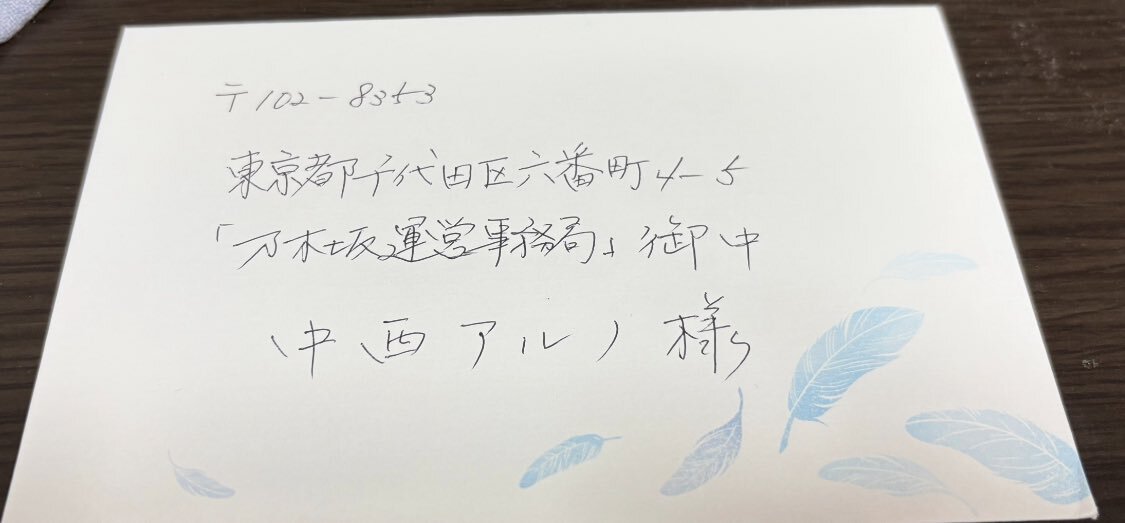 〒102-8353
東京都千代田区六番町4-5
「乃木坂運営事務局」御中
中西アルノ様